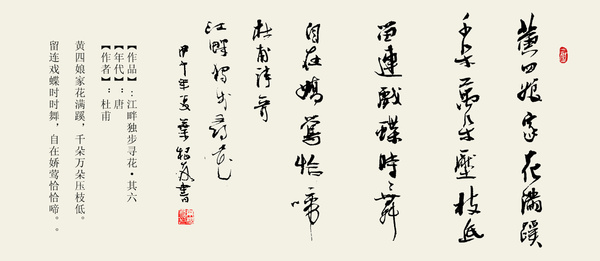 黄四娘家花滿蹊
千朵萬朵壓枝低
留連戲蝶時〻舞
自在嬌鶯恰〻啼
杜甫詩
江畔獨步尋花
甲午年夏 葉 書
【作品】:江畔独步寻花·其六
【年代】:唐
【作者】:杜甫
黄四娘家花满蹊,千朵万朵压枝低。
留连戏蝶时时舞,自在娇莺恰恰啼。。